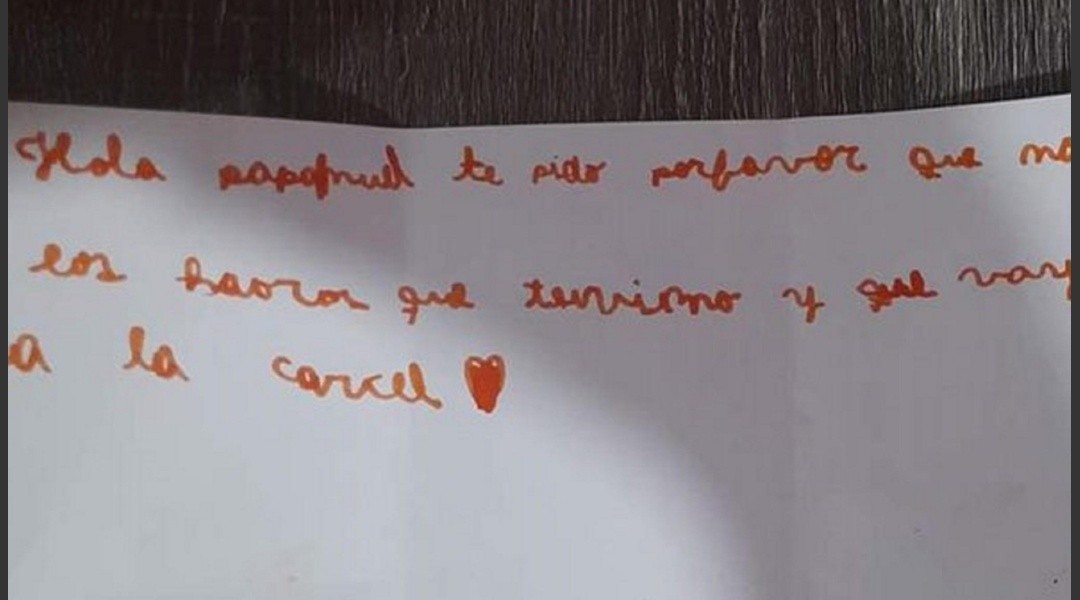 Hola papafnuel te pido porfavor que no
los haoror que tenvismo y que vay
a la carcel